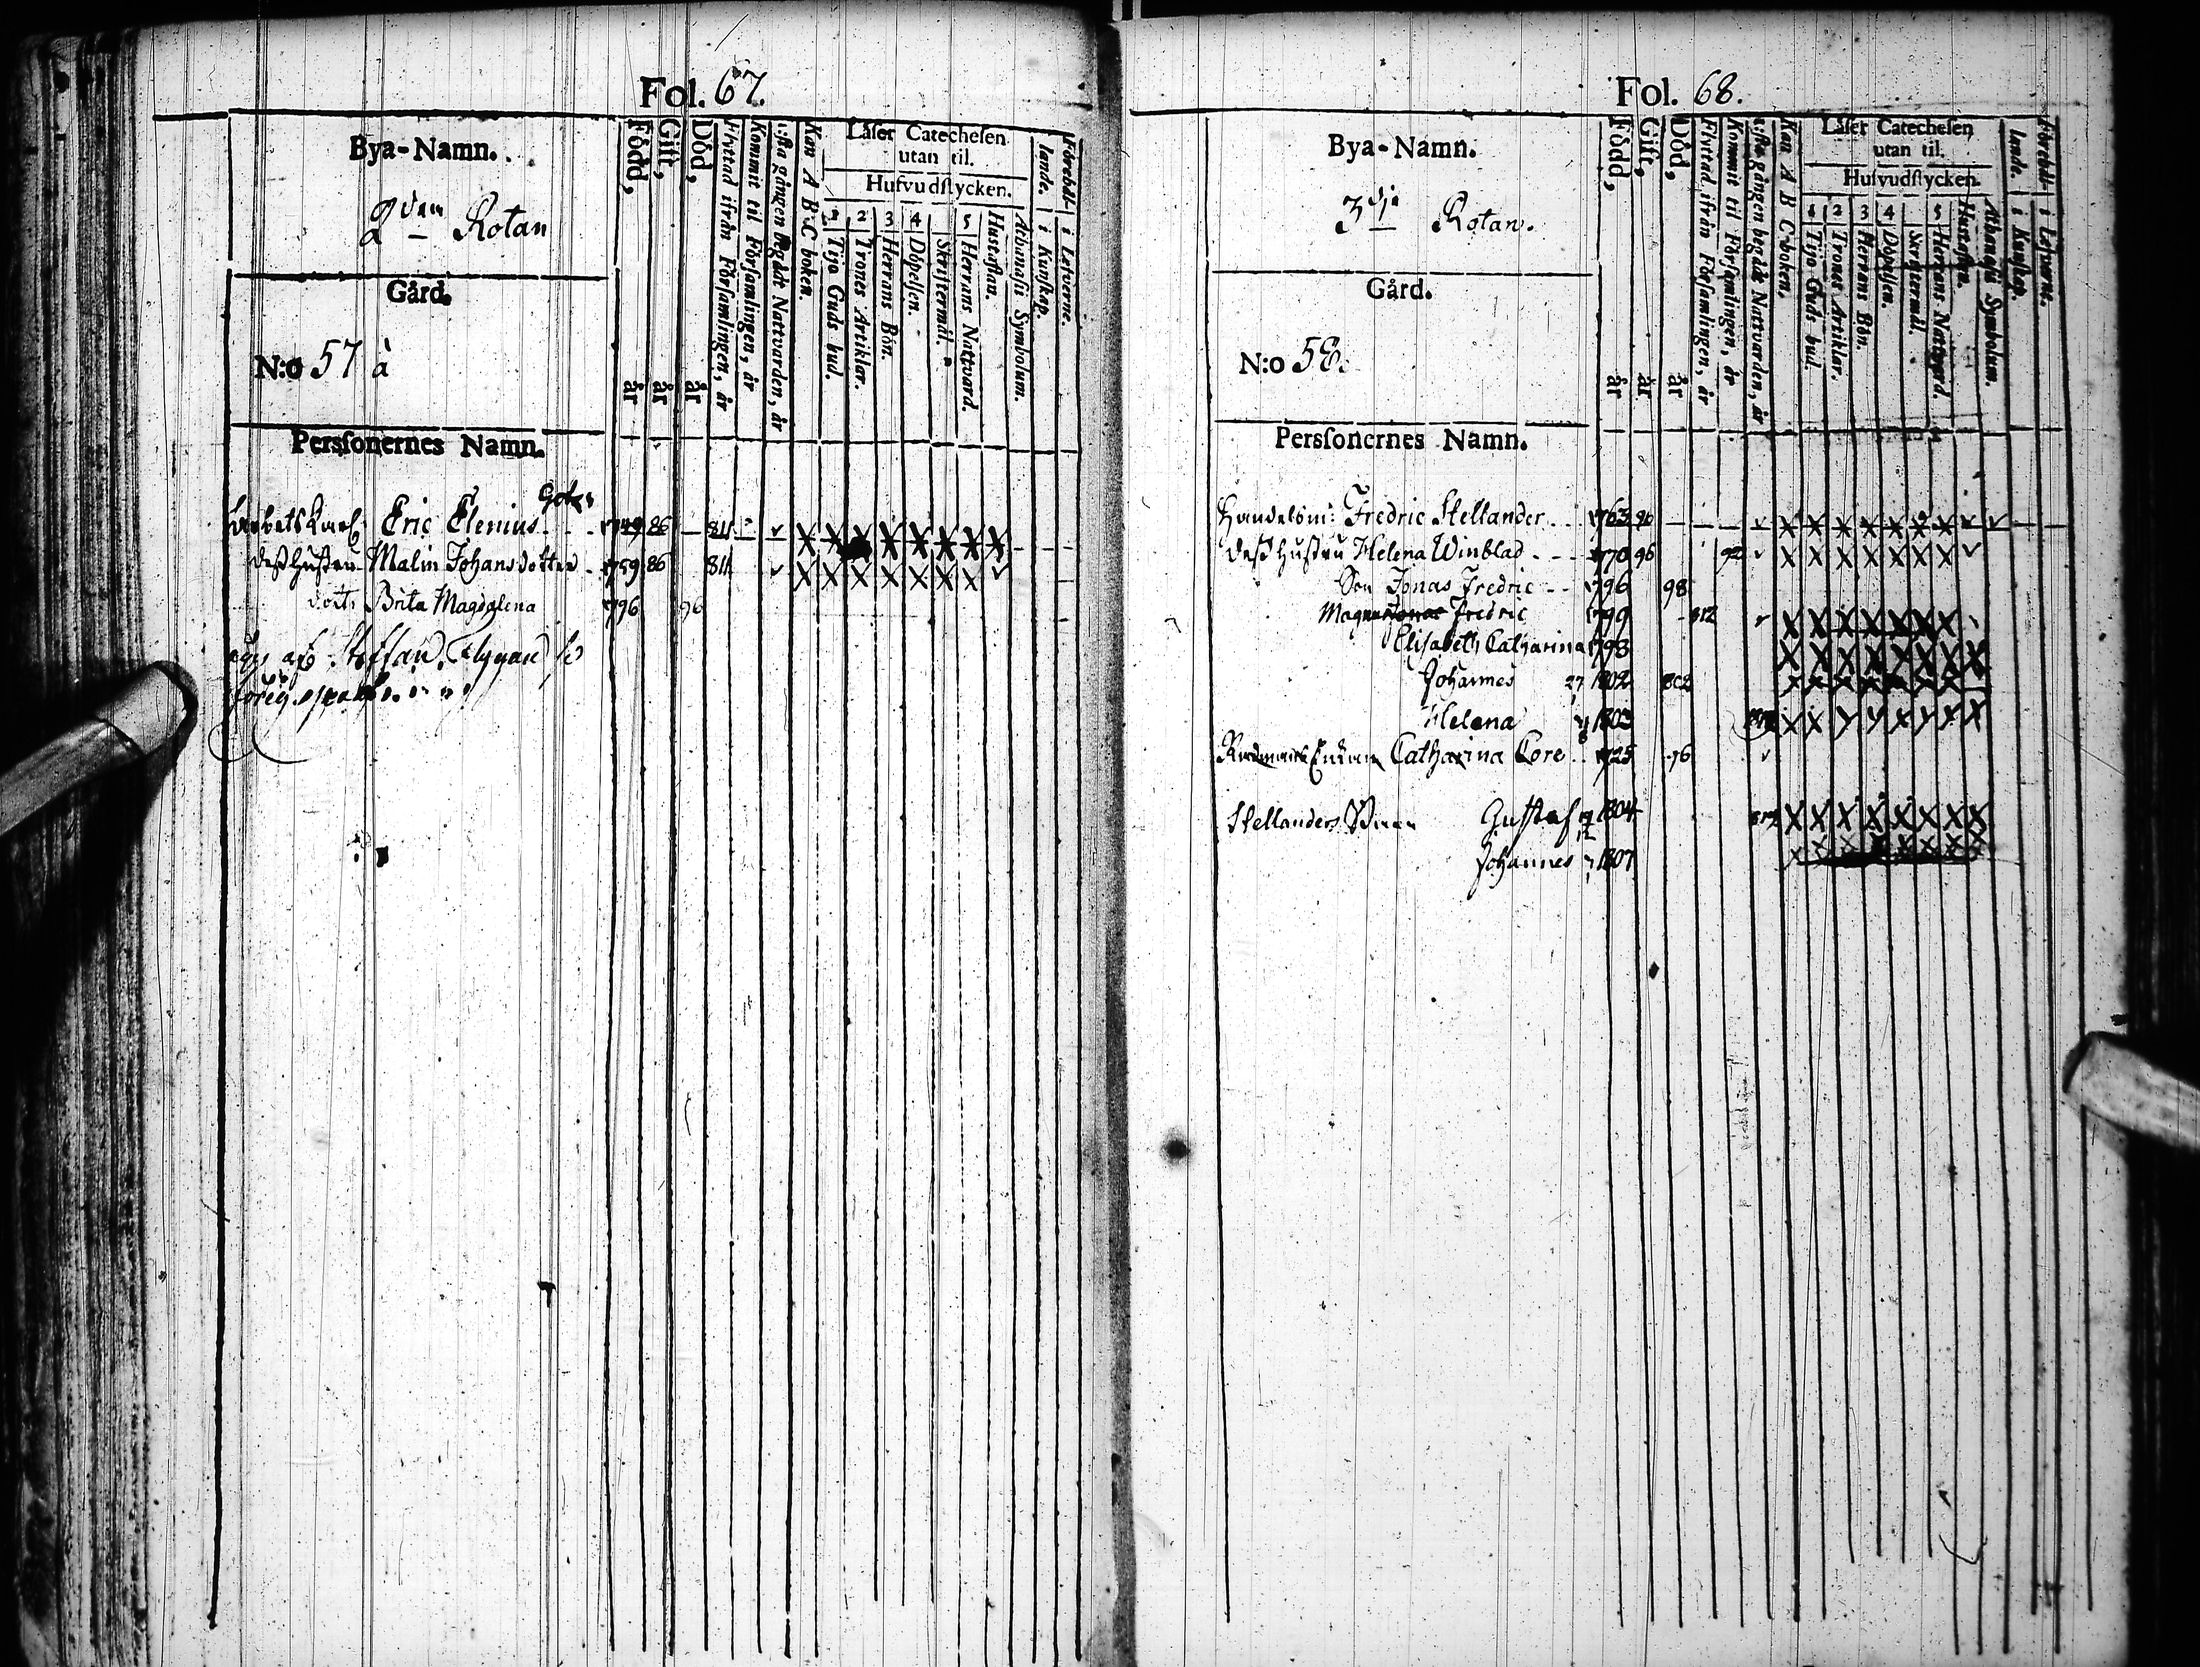 Fol. 67.
Bya-Namn.
2dra Rotan
Gård.
N:o 57 à
Personernes Namn.
Född, år
Gift, år
Död, år
Flyttad ifrån Församlingen, år
Kommit til Församlingen, år
1:sta gången begådt Nattvarden, år
Kan A B C boken.
Låser Catechesen
utan til.
Hufvudstycken.
1 Tijo Guds bud.
2 Trones Artiklar.
3 Herrans Bön.
4 Döpelsen.
Skriftermål.
5 Herrans Nattvard.
Hustaflan.
Athanasii Symbolum.
Förehål-
lande.
i Kunskap.
i Lefverne.
Arbets Karl Eric Elenius 1749 86 811
dess Hustru Malin Johansdotter 1759 86 811
dott. Brita Magdalena 1796 96
Fol. 68.
Bya-Namn.
3dje Rotan.
Gård.
N:o 58.
Personernes Namn.
Född, år
Gift, år
Död, år
Flyttad ifrån Församlingen, år
Kommit til Församlingen, år
1:sta gången begådt Nattvarden, år
Kan A B C-boken,
Låser Catechesen
utan til.
Hufvudstycken.
1 Tijo Guds bud.
2 Trones Artiklar.
3 Herrans Bön.
4 Döpelsen.
Skriftermål.
5 Herrans Nattvard.
Hustaflan.
Athanasii Symbolum.
Förehål-
lande.
i Kunskap.
i Lefverne.
Handelsm: Fredric Stellander 1763 96
dess Hustru Helena Winblad 1770 96 92
Son Jonas Fredric 1796 98
Magnus Jonas Fredric 1799 812
Elisabeth Catharina 1798
Johannes 27 1802 802
Helena 1803
Enkan Catharina Core 1725 96
Stellanders Söner Gustaf 1804 819
Johannes 1807